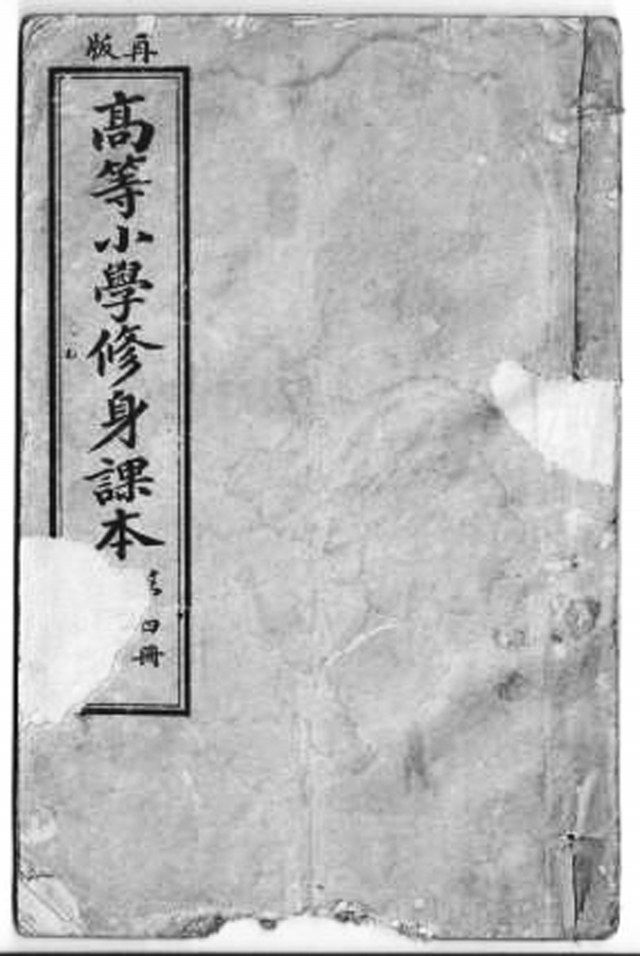 再版
高等小學修身課本
四冊